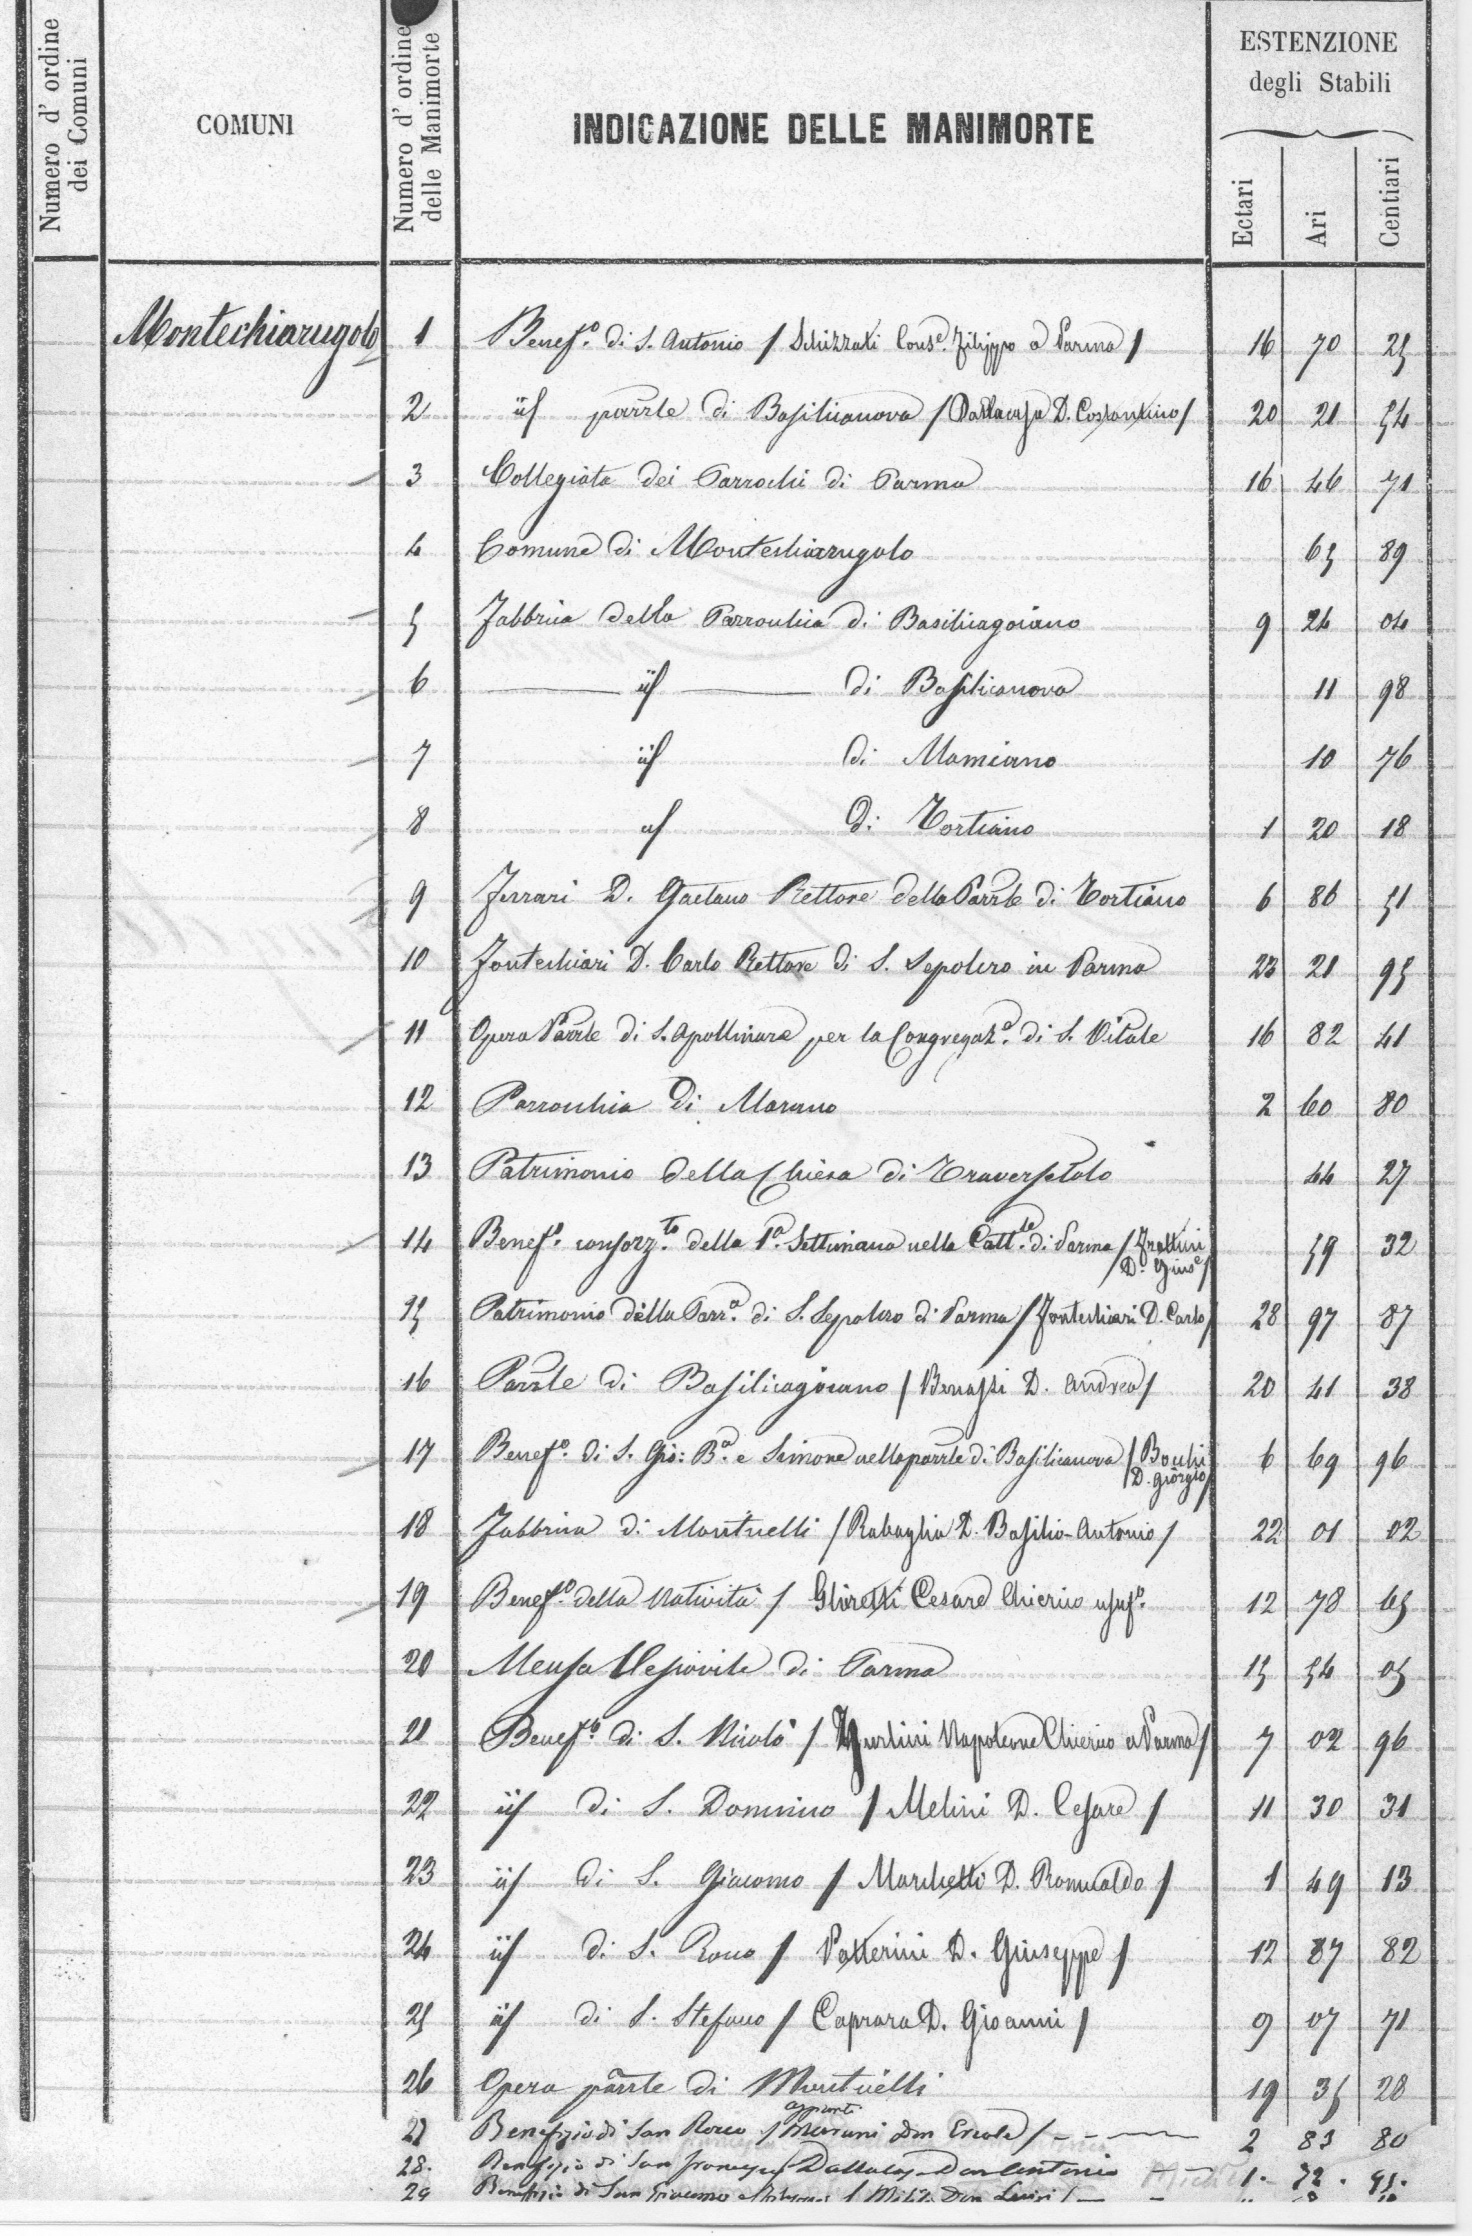 Numero d' ordine dei Comuni
COMUNI
Numero d' ordine delle Manimorte
INDICAZIONE DELLE MANIMORTE
ESTENZIONE
degli Stabili
Ectari Ari Centiari
Montechiarugolo 1 Benef.o di S. Antonio / Schizzati Cons.e Filippo a Parma / 16 70 25
2 id parrle di Basilicanova / Dallacasa D. Costantino / 20 21 54
3 Collegiata dei Parrochi di Parma 16 46 71
4 Comune di Montechiarugolo 65 89
5 Fabbrica della Parrochia di Basilicagoiano 9 24 04
6 id di Basilicanova 11 98
7 id di Mamiano 10 76
8 id di Tortiano 1 20 18
9 Ferrari D. Gaetano Rettore della Parrle di Tortiano 6 86 51
10 Fontechiari D. Carlo Rettore di S. Sepolcro in Parma 23 21 95
11 Opera Parrle di S. Apollinare per la Congregaz.e di S. Vitale 16 82 41
12 Parrochia di Marano 2 60 80
13 Patrimonio della Chiesa di Traversetolo 44 27
14 Benef.o consorz.to della 1.a Settimana nella Catt.le di Parma / Frattini
D. Gius.e / 59 32
15 Patrimonio della Parr.a di S. Sepolcro di Parma / Fontechiari D. Carlo / 28 97 87
16 Parrle di Basilicagoiano / Benassi D. Andrea / 20 41 38
17 Benef.o di S. Gio: B.a e Simone nella parrle di Basilicanova / Bocchi
D. Giorgio / 6 69 96
18 Fabbrica di Monticelli / Rabaglia D. Basilio-Antonio / 22 01 02
19 Benef.o della Natività / Ghiretti Cesare Chierico usuf.o 12 78 65
20 Mensa Vescovile di Parma 15 54 05
21 Benef.o di S. Nicolò / Napoleone Chierico a Parma / 7 02 96
22 id di S. Donnino / Melini D. Cesare / 11 30 31
23 id di S. Giacomo / Marchetti D. Romualdo / 1 49 13
24 id di S. Rocco / Patterini D. Giuseppe / 12 87 82
25 id di S. Stefano / Caprara D. Gioanni / 9 07 71
26 Opera parrle di Monticelli 19 35 28
27 Benefizio di San Rocco / Don Ercole / 2 83 80
28. Benefizio di San Don Antonio 1.
29 Benefizio di San Giacomo Don Luigi /